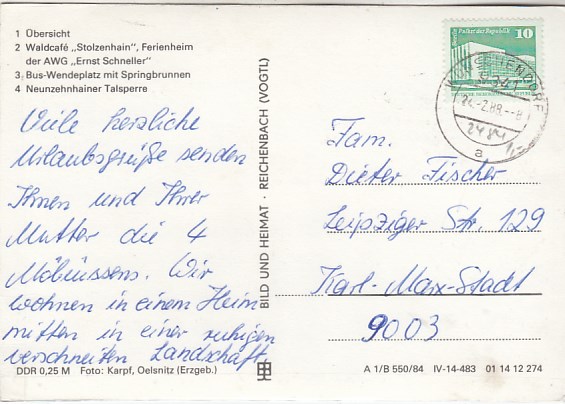 1 Übersicht
2 Waldcafé „Stolzenhain“, Ferienheim
der AWG „Ernst Schneller“
3 Bus-Wendeplatz mit Springbrunnen
4 Neunzehnhainer Talsperre
Viele herzliche
Urlaubsgrüße senden
Ihnen und Ihrer
Mutter die 4
Möbiussens. Wir
wohnen in einem Heim
mitten in einer ruhigen
verschneiten Landschaft.
DDR 0,25 M Foto: Karpf, Oelsnitz (Erzgeb.)
BILD UND HEIMAT · REICHENBACH (VOGTL)
Palast der Republik 10
9341
24.-2.88.--8
a
Fam.
Dieter Fischer
Leipziger Str. 129
Karl-Marx-Stadt
9003
A 1/B 550/84 IV-14-483 01 14 12 274